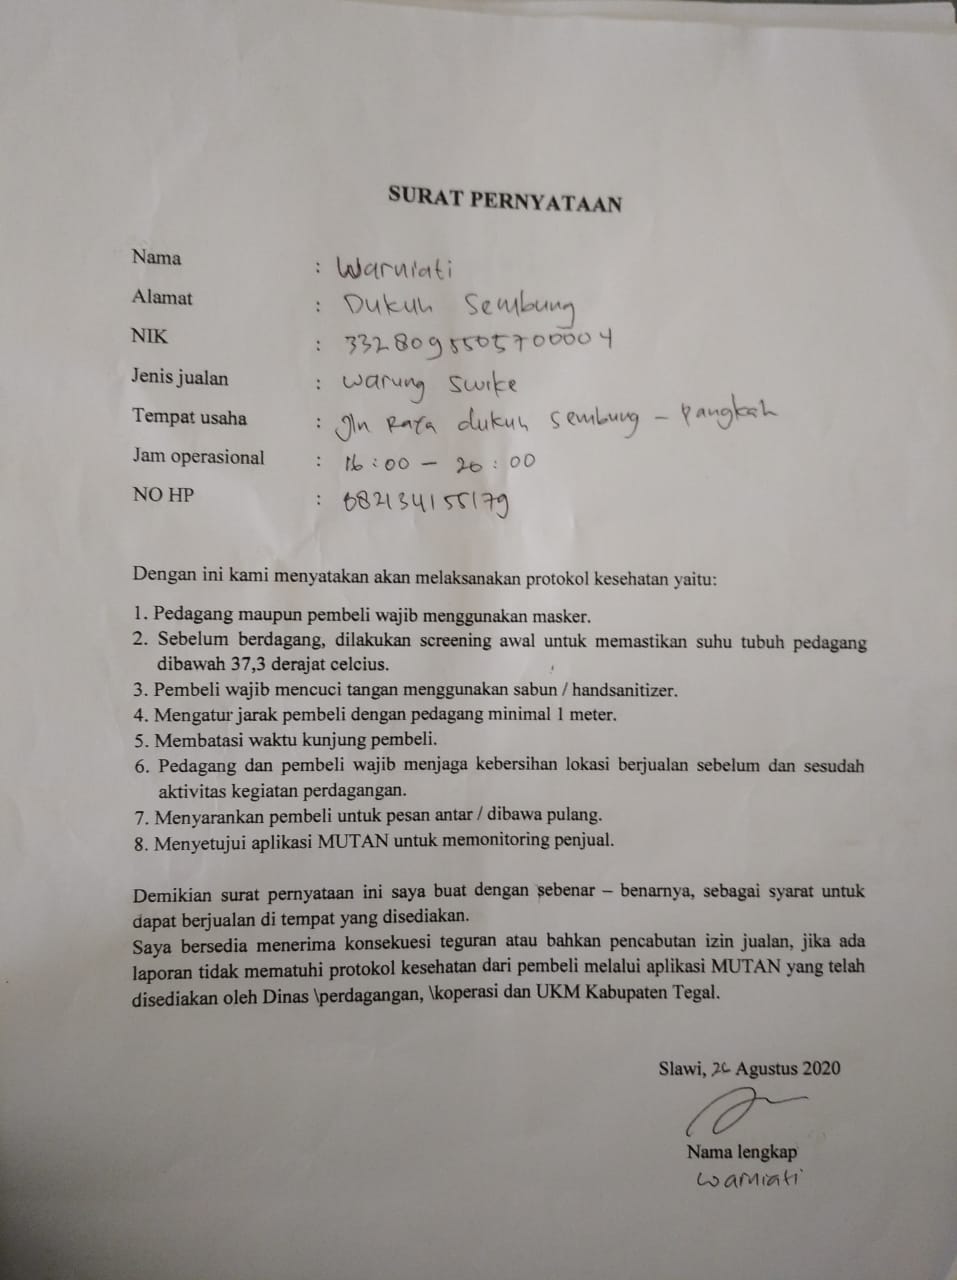 SURAT PERNYATAAN
Nama : Warniati
Alamat : Dukuh Sembung
NIK : 3328095505700004
Jenis jualan : warung swike
Tempat usaha : Jln Raya dukuh sembung - pangkah
Jam operasional : 16:00 - 20:00
NO HP : 082134155179
Dengan ini kami menyatakan akan melaksanakan protokol kesehatan yaitu:
1. Pedagang maupun pembeli wajib menggunakan masker.
2. Sebelum berdagang, dilakukan screening awal untuk memastikan suhu tubuh pedagang
dibawah 37,3 derajat celcius.
3. Pembeli wajib mencuci tangan menggunakan sabun / handsanitizer.
4. Mengatur jarak pembeli dengan pedagang minimal 1 meter.
5. Membatasi waktu kunjung pembeli.
6. Pedagang dan pembeli wajib menjaga kebersihan lokasi berjualan sebelum dan sesudah
aktivitas kegiatan perdagangan.
7. Menyarankan pembeli untuk pesan antar / dibawa pulang.
8. Menyetujui aplikasi MUTAN untuk memonitoring penjual.
Demikian surat pernyataan ini saya buat dengan sebenar – benarnya, sebagai syarat untuk
dapat berjualan di tempat yang disediakan.
Saya bersedia menerima konsekuesi teguran atau bahkan pencabutan izin jualan, jika ada
laporan tidak mematuhi protokol kesehatan dari pembeli melalui aplikasi MUTAN yang telah
disediakan oleh Dinas \perdagangan, \koperasi dan UKM Kabupaten Tegal.
Slawi, Agustus 2020
Nama lengkap
Warniati